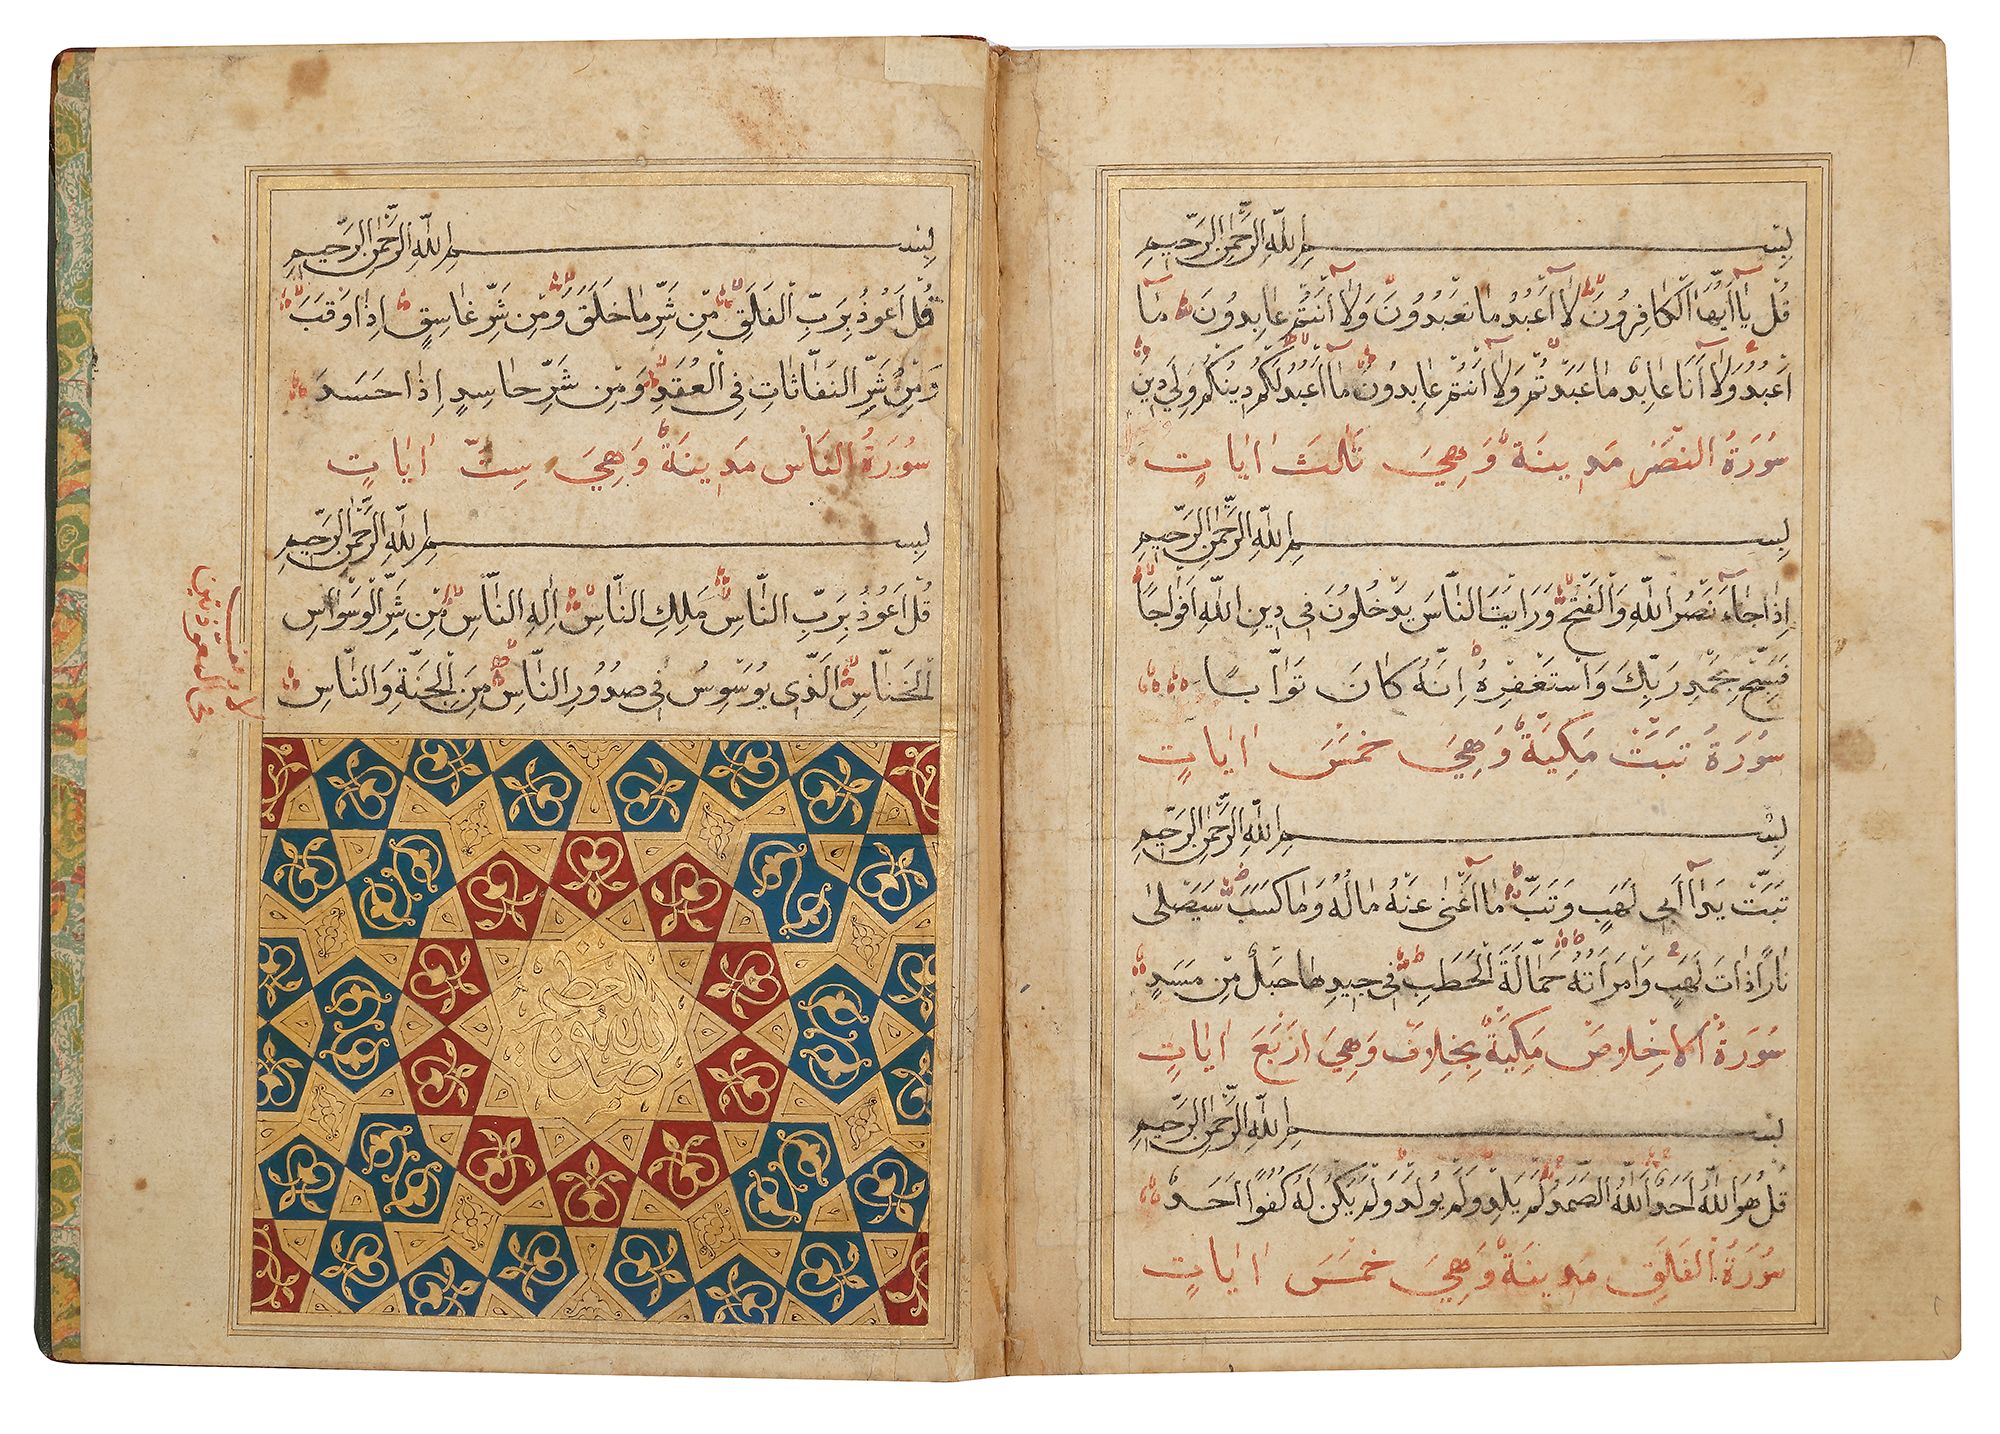 بِسْمِ اللهِ الرَّحْمٰنِ الرَّحِيمِ
قُلْ يٰا أَيُّهَا الْكٰافِرُونَ لٰا أَعْبُدُ مٰا تَعْبُدُونَ وَلٰا أَنْتُمْ عٰابِدُونَ مٰا
أَعْبُدُ وَلٰا أَنَا عٰابِدٌ مٰا عَبَدْتُمْ وَلٰا أَنْتُمْ عٰابِدُونَ مٰا أَعْبُدُ لَكُمْ دِينُكُمْ وَلِيَ دِينِ
سُورَةُ النَّصْرِ مَدِينَةٌ وَهِيَ ثَالثَ اٰيَاتٍ
بِسْمِ اللهِ الرَّحْمٰنِ الرَّحِيمِ
إِذٰا جٰاءَ نَصْرُ اللهِ وَالْفَتْحُ وَرَأَيْتَ النَّاسَ يَدْخُلُونَ فِي دِينِ اللهِ أَفْوٰاجًا
فَسَبِّحْ بِحَمْدِ رَبِّكَ وَاسْتَغْفِرْهُ إِنَّهُ كٰانَ تَوّٰابًا
سُورَةُ تَبَّتْ مَكِيَةٌ وَهِيَ خَمْسَ اٰيَاتٍ
بِسْمِ اللهِ الرَّحْمٰنِ الرَّحِيمِ
تَبَّتْ يَدٰا أَبِي لَهَبٍ وَتَبَّ مٰا أَغْنٰى عَنْهُ مٰالُهُ وَمٰا كَسَبَ سَيَصْلٰى
نٰارًا ذٰاتَ لَهَبٍ وَامْرَأَتُهُ حَمّٰالَةَ الْحَطَبِ فِي جِيدِهٰا حَبْلٌ مِنْ مَسَدٍ
سُورَةُ الْاِخْلاصِ مَكِيَةٌ بِخِلافٍ وَهِيَ اَرْبَعَ اٰيَاتٍ
بِسْمِ اللهِ الرَّحْمٰنِ الرَّحِيمِ
قُلْ هُوَ اللهُ أَحَدٌ اَللهُ الصَّمَدُ لَمْ يَلِدْ وَلَمْ يُولَدْ وَلَمْ يَكُنْ لَهُ كُفُوًا أَحَدٌ
سُورَةُ الْفَلَقِ مَدِينَةٌ وَهِيَ خَمْسَ اٰيَاتٍ
بِسْمِ اللهِ الرَّحْمٰنِ الرَّحِيمِ
قُلْ أَعُوذُ بِرَبِّ الْفَلَقِ مِنْ شَرِّ مٰا خَلَقَ وَمِنْ شَرِّ غٰاسِقٍ إِذٰا وَقَبَ
وَمِنْ شَرِّ النَّفّٰاثٰاتِ فِي الْعُقَدِ وَمِنْ شَرِّ حٰاسِدٍ إِذٰا حَسَدَ
سُورَةُ النَّاسِ مَدِينَةٌ وَهِيَ سِتُّ اٰيَاتٍ
بِسْمِ اللهِ الرَّحْمٰنِ الرَّحِيمِ
قُلْ أَعُوذُ بِرَبِّ النّٰاسِ مَلِكِ النّٰاسِ إِلٰهِ النّٰاسِ مِنْ شَرِّ الْوَسْوٰاسِ
الْخَنّٰاسِ الَّذِي يُوَسْوِسُ فِي صُدُورِ النّٰاسِ مِنَ الْجِنَّةِ وَالنّٰاسِ
صدق الله العظيم